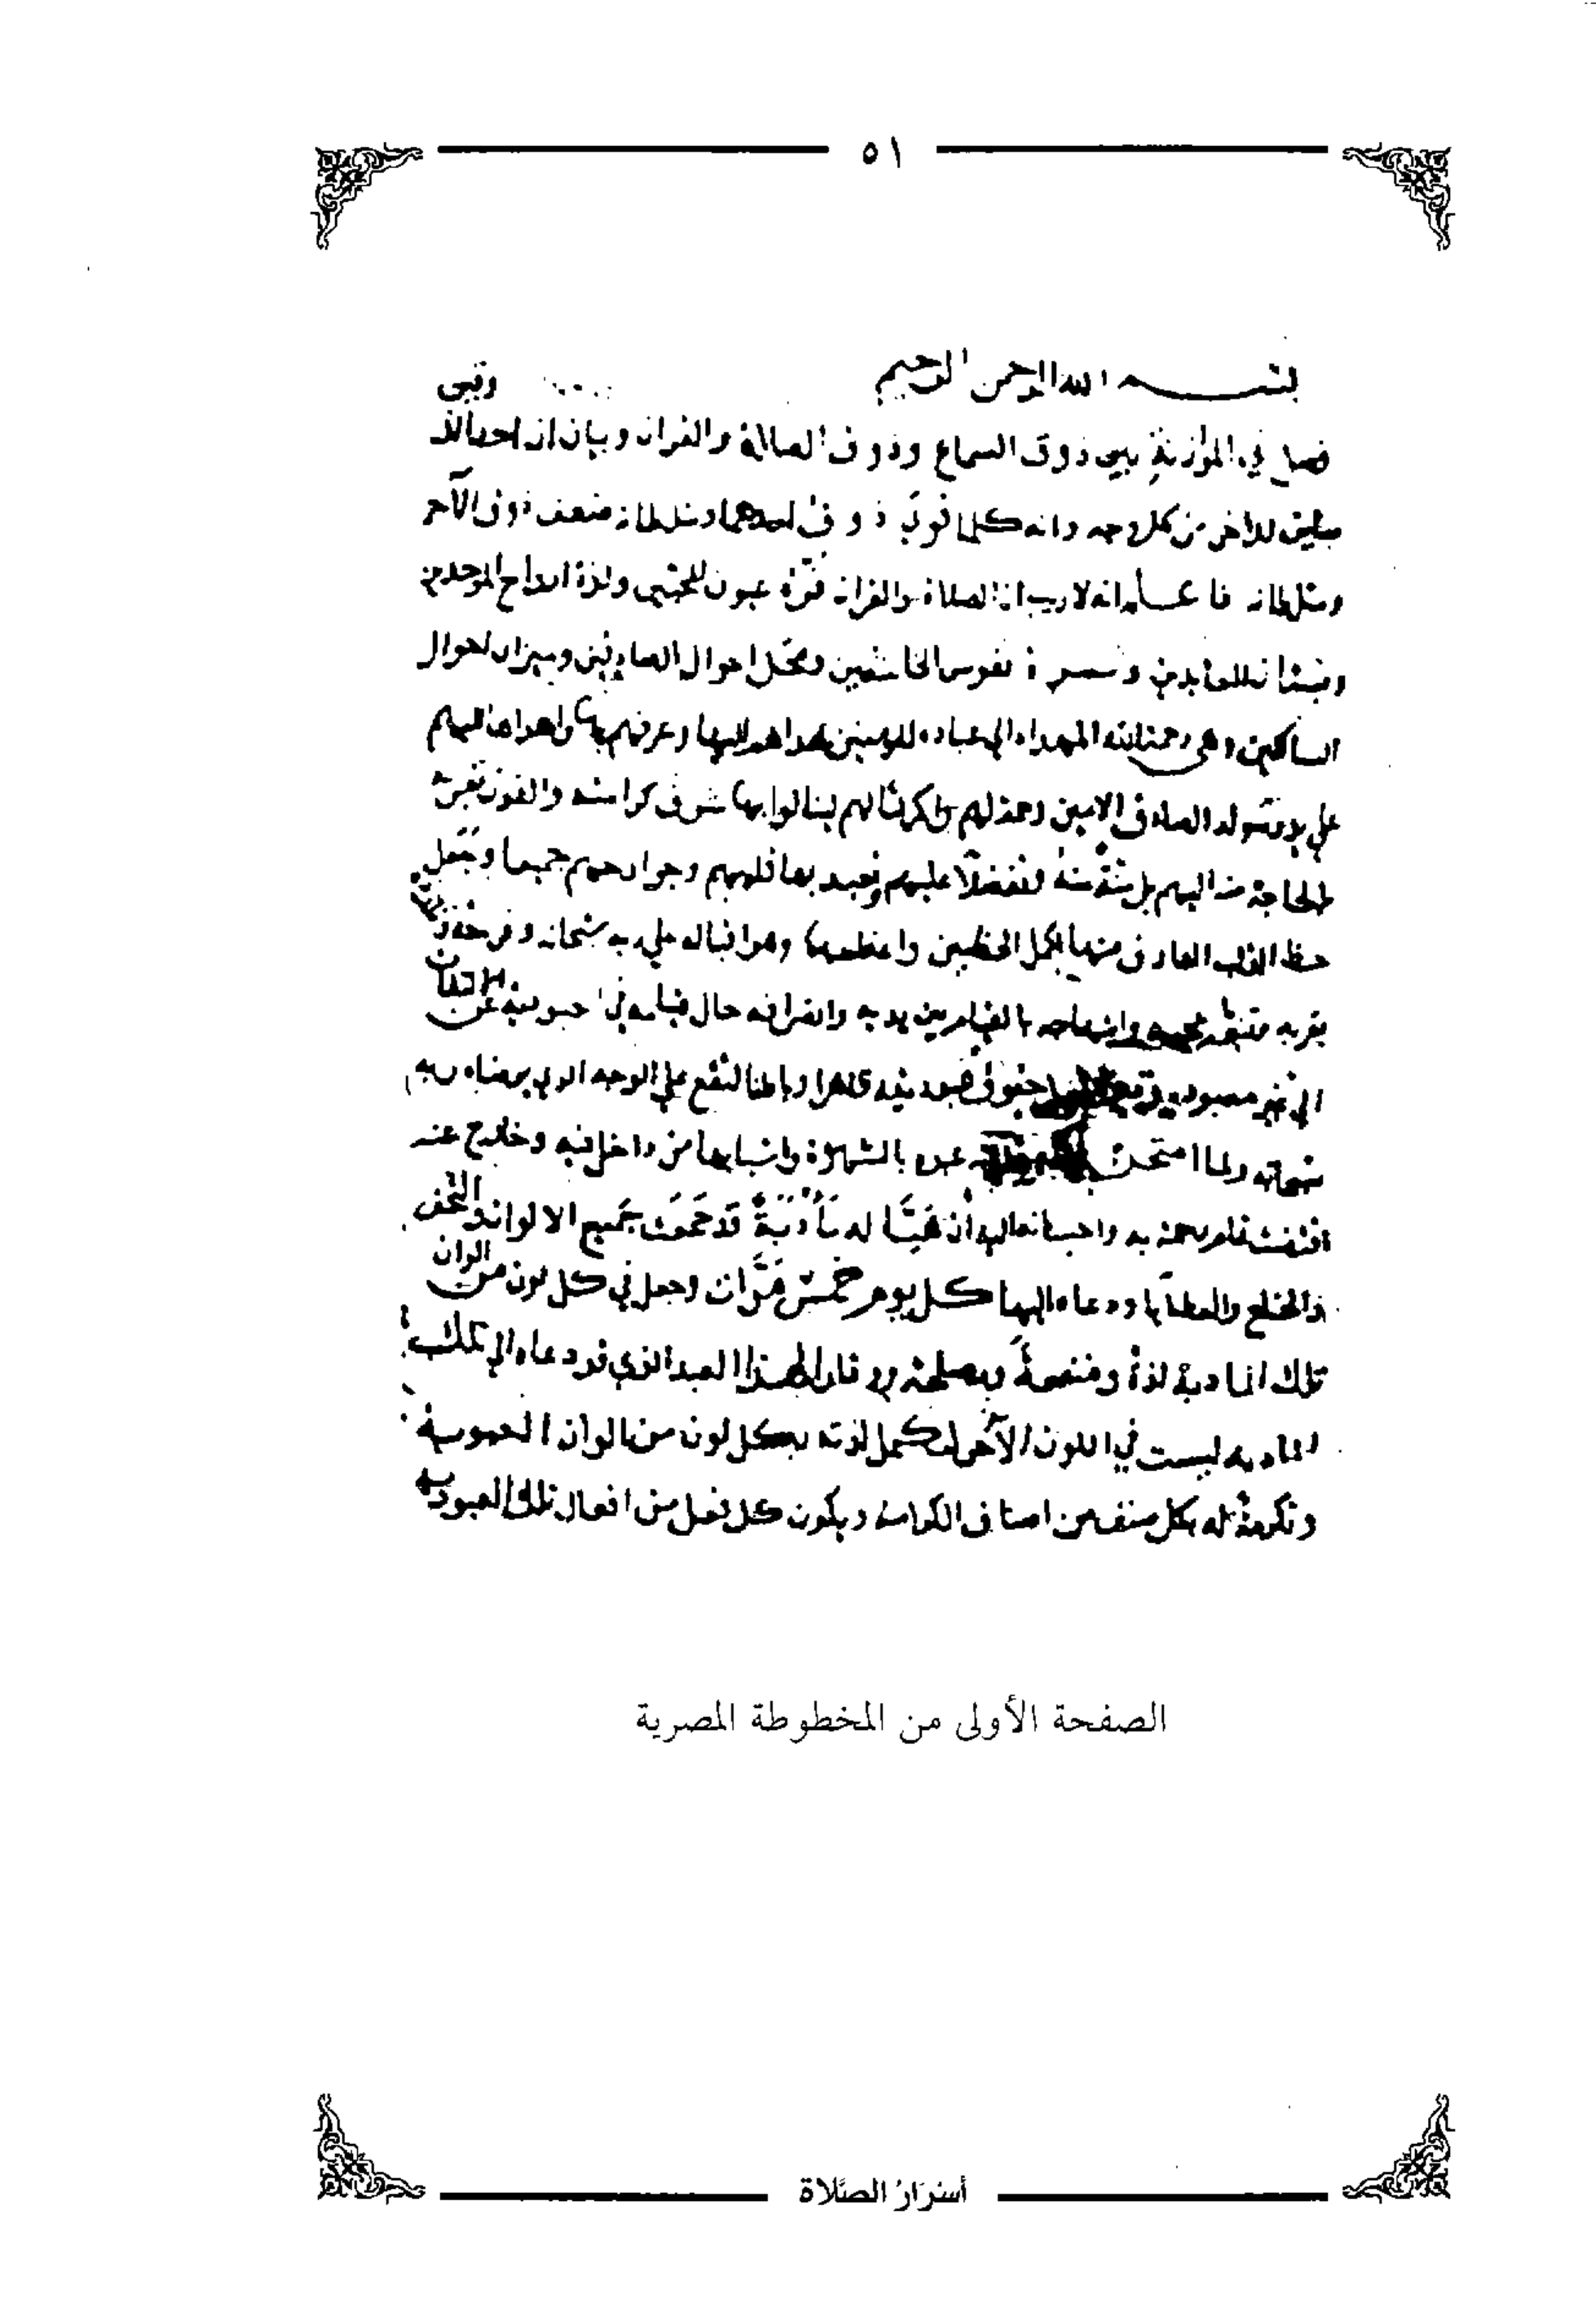 ٥١
بسم الله الرحمن الرحيم
فصل في الموازنة بين ذوق السماع وذوق الصلاة والقران وبيان ان احد
مباين للاخر من كل وجه وانه كلما قوي ذوق احدهما وسلطانه ضعف ذوق الآخر
وسلطانه فاعلم انه لا ريب ان الصلاة والقران قرة عيون المحبين ولذة ارواح الموحدين
وبستان العابدين وثمرة نفوس الخاشعين ومحك احوال الصادقين وميزان احوال
السالكين وهي رحمة الله المهداه الي عباده المومنين هداهم اليها وعرفهم بها واهداها اليهم
علي يد رسوله الصادق الامين رحمة لهم واكراما لهم لينالوا بها شرف كرامته والفوز بقربه
لا لحاجة منه اليهم بل منة منه وتفضلا عليهم وتعبد بها قلوبهم وجوارحهم جميعا وجعل
حظ القلب العارف منها اكمل الحظين واعظمهما وهو اقباله علي ربه سبحانه وفرحه
بقربه وتنعمه بحبه وابتهاجه بالقيام بين يديه وانصرافه حال قيامه في عبوديته عن الالتفات
الي غير معبوده وتكميله حقوق عبوديته ظاهرا وباطنا لتقع علي الوجه الذي يرضاه ربه
سبحانه ولما امتحن عبده بالشهوة واسبابها من داخل فيه وخارج عنه
اقتضت تمام رحمته به واحسانه اليه أن هيأ له مأدبة قد جمعت جميع الالوان والتحف
والخلع والعطايا ودعاه اليها كل يوم خمس مرات وجعل في كل لون من الوان
تلك المادبة لذة ومنفعة ومصلحة لهذا العبد الذي قد دعاه الي تلك
المادبه ليست في اللون الآخر لتكمل لذته بكل لون من الوان العبودية
وتكرمة له بكل صنف من اصناف الكرامة ويكون كل فعل من افعال تلك العبودية
الصفحة الأولى من المخطوطة المصرية
أسرار الصلاة